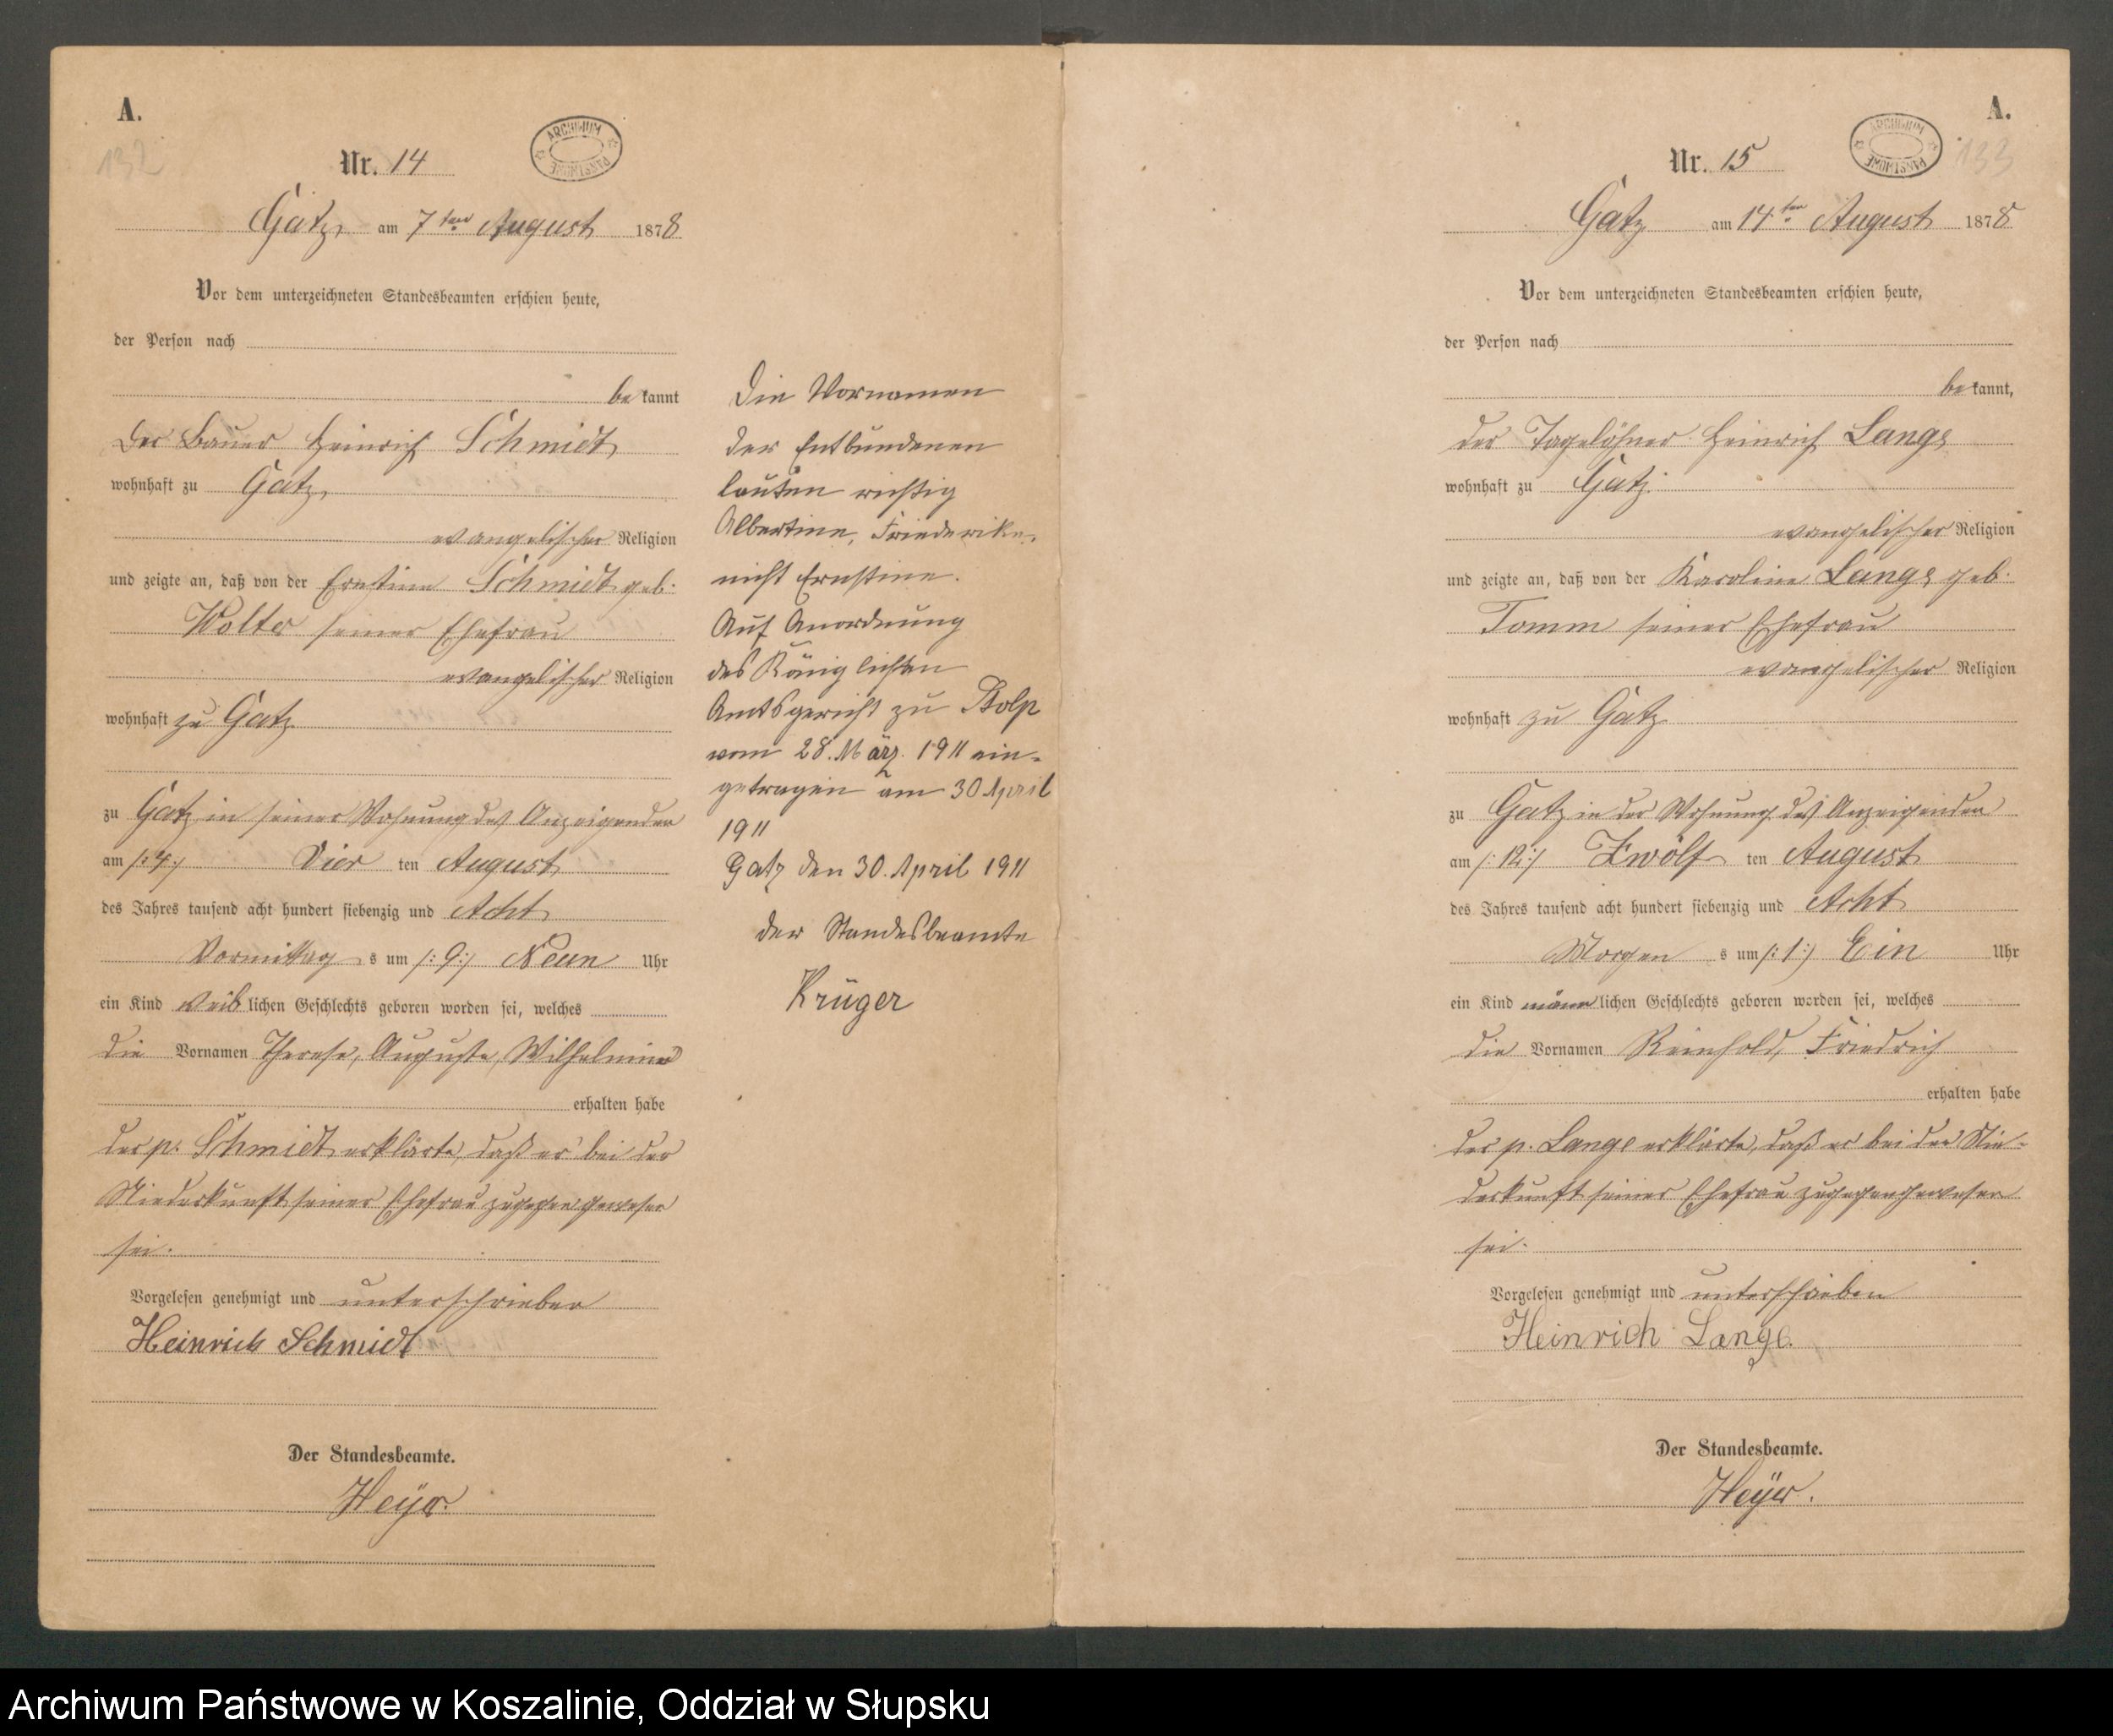 A.
132
Nr. 14
ARCHIWUM PAŃSTWOWE
Gatz, am 7ten August 1878
Vor dem unterzeichneten Standesbeamten erschien heute,
der Person nach
be kannt
der Bauer Heinrich Schmidt
wohnhaft zu Gatz,
evangelischer Religion
und zeigte an, daß von der Ernstine Schmidt geb.
Wolter seiner Ehefrau
evangelischer Religion
wohnhaft zu Gatz
zu Gatz in seiner Wohnung des Anzeigenden
am /:4:/ Vier ten August
des Jahres tausend acht hundert siebenzig und Acht
Vormittag s um /:9:/ Neun Uhr
ein Kind weib lichen Geschlechts geboren worden sei, welches
die Vornamen Therese, Auguste, Wilhelmine
erhalten habe
der p. Schmidt erklärte, daß er bei der
Niederkunft seiner Ehefrau zugegen gewesen
sei.
Vorgelesen genehmigt und unterschrieben
Heinrich Schmidt
Der Standesbeamte.
Heyer.
Die Vornamen
der Entbundenen
lauten richtig
Albertine, Friederike,
nicht Ernstine.
Auf Anordnung
des Königlichen
Amtsgericht zu Stolp
vom 28. März. 1911 ein-
getragen am 30 April
1911
Gatz den 30. April 1911
der Standesbeamte
Krüger
A.
133
Nr. 15
ARCHIWUM PAŃSTWOWE
Gatz am 14ten August 1878
Vor dem unterzeichneten Standesbeamten erschien heute,
der Person nach
be kannt,
der Tagelöhner Heinrich Lange
wohnhaft zu Gatz
evangelischer Religion
und zeigte an, daß von der Karoline Lange geb.
Tomm seiner Ehefrau
evangelischer Religion
wohnhaft zu Gatz
zu Gatz in der Wohnung des Anzeigenden
am /:12:/ Zwölf ten August
des Jahres tausend acht hundert siebenzig und Acht
Morgen s um /:1:/ Ein Uhr
ein Kind männ lichen Geschlechts geboren worden sei, welches
die Vornamen Reinhold, Friedrich
erhalten habe
der p. Lange erklärte, daß er bei der Nie-
derkunft seiner Ehefrau zugegen gewesen
sei.
Vorgelesen genehmigt und unterschrieben
Heinrich Lange.
Der Standesbeamte.
Heyer.
Archiwum Państwowe w Koszalinie, Oddział w Słupsku